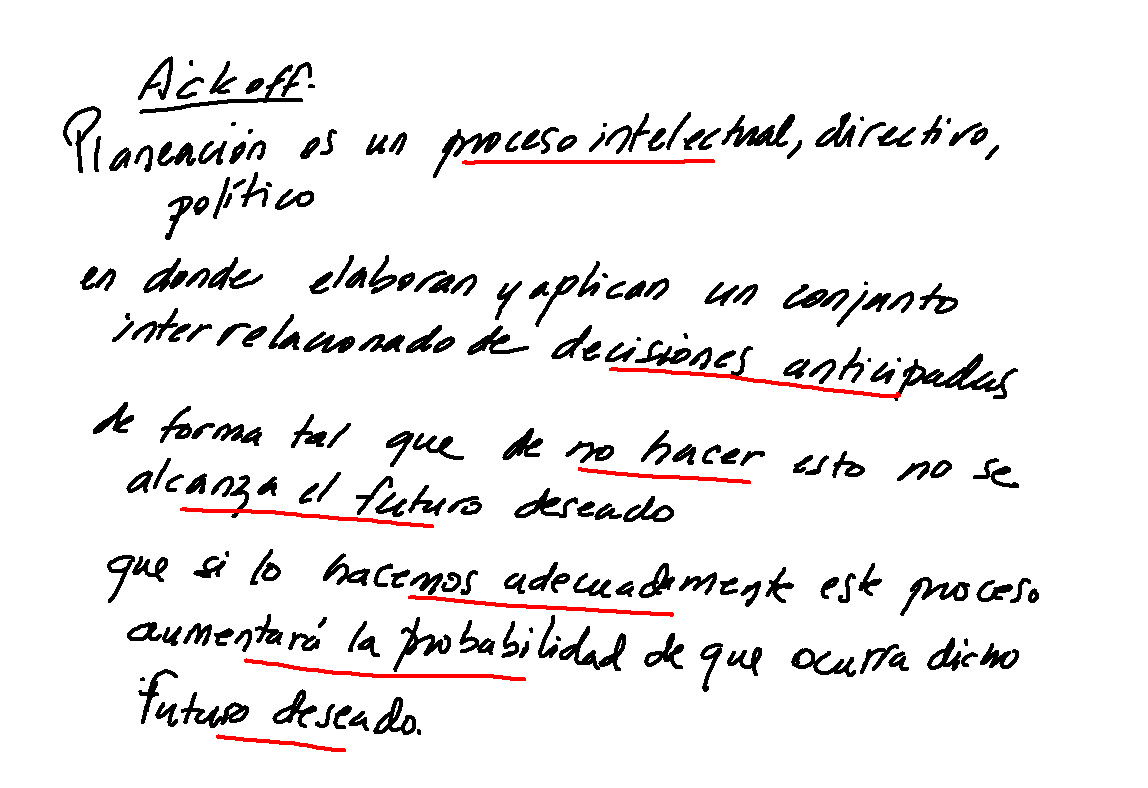 Ackoff.
Planeación es un proceso intelectual, directivo,
político
en donde elaboran y aplican un conjunto
interrelacionado de decisiones anticipadas
de forma tal que de no hacer esto no se
alcanza el futuro deseado
que si lo hacemos adecuadamente este proceso
aumentará la probabilidad de que ocurra dicho
futuro deseado.